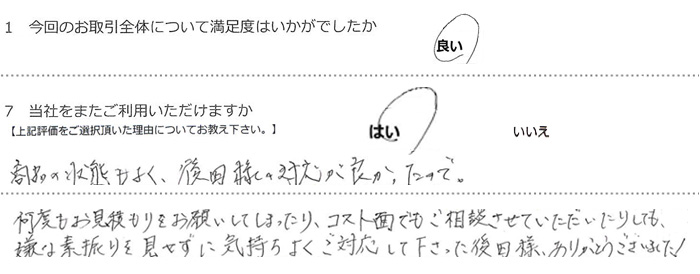 1 今回のお取引全体について満足度はいかがでしたか
良い
7 当社をまたご利用いただけますか
【上記評価をご選択頂いた理由についてお教え下さい。】
はい
いいえ
商品の状態もよく、後田様の対応が良かったので。
何度もお見積もりをお願いしてしまったり、コスト面でもご相談させていただいたりしても、
嫌な素振りを見せずに気持ちよくご対応して下さった後田様、ありがとうございました!